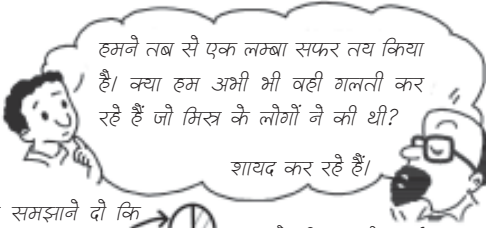 हमने तब से एक लम्बा सफर तय किया
है। क्या हम अभी भी वही गलती कर
रहे हैं जो मिस्र के लोगों ने की थी?
शायद कर रहे हैं।
समझाने दो कि